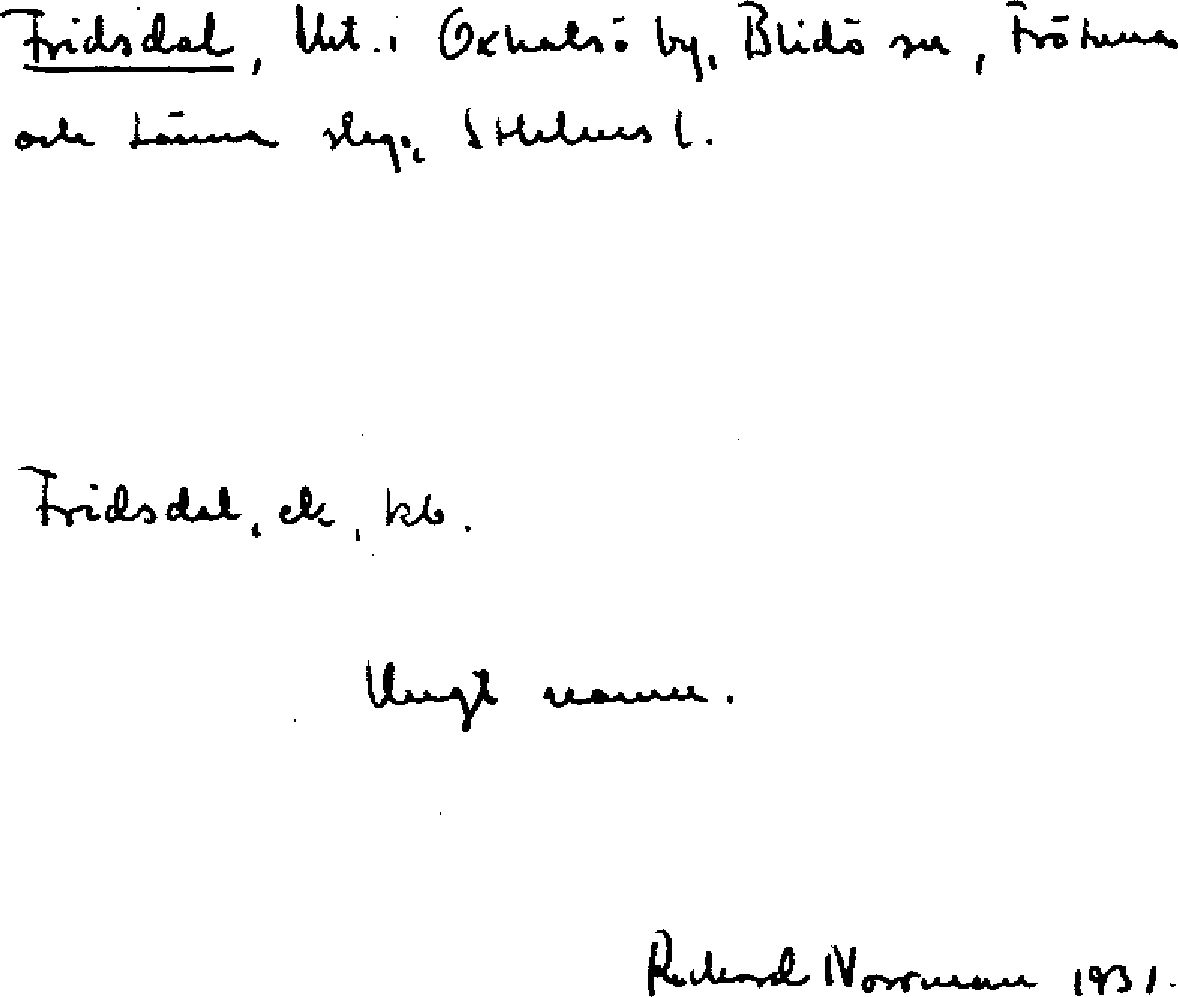 Fridsdal, lht. i Oxhalsö by, Blidö sn, Frötuna
och Länna slag, Sthlms l.
Fridsdal, ek, kb.
Ungt namn.
Richard Norrman 1931.